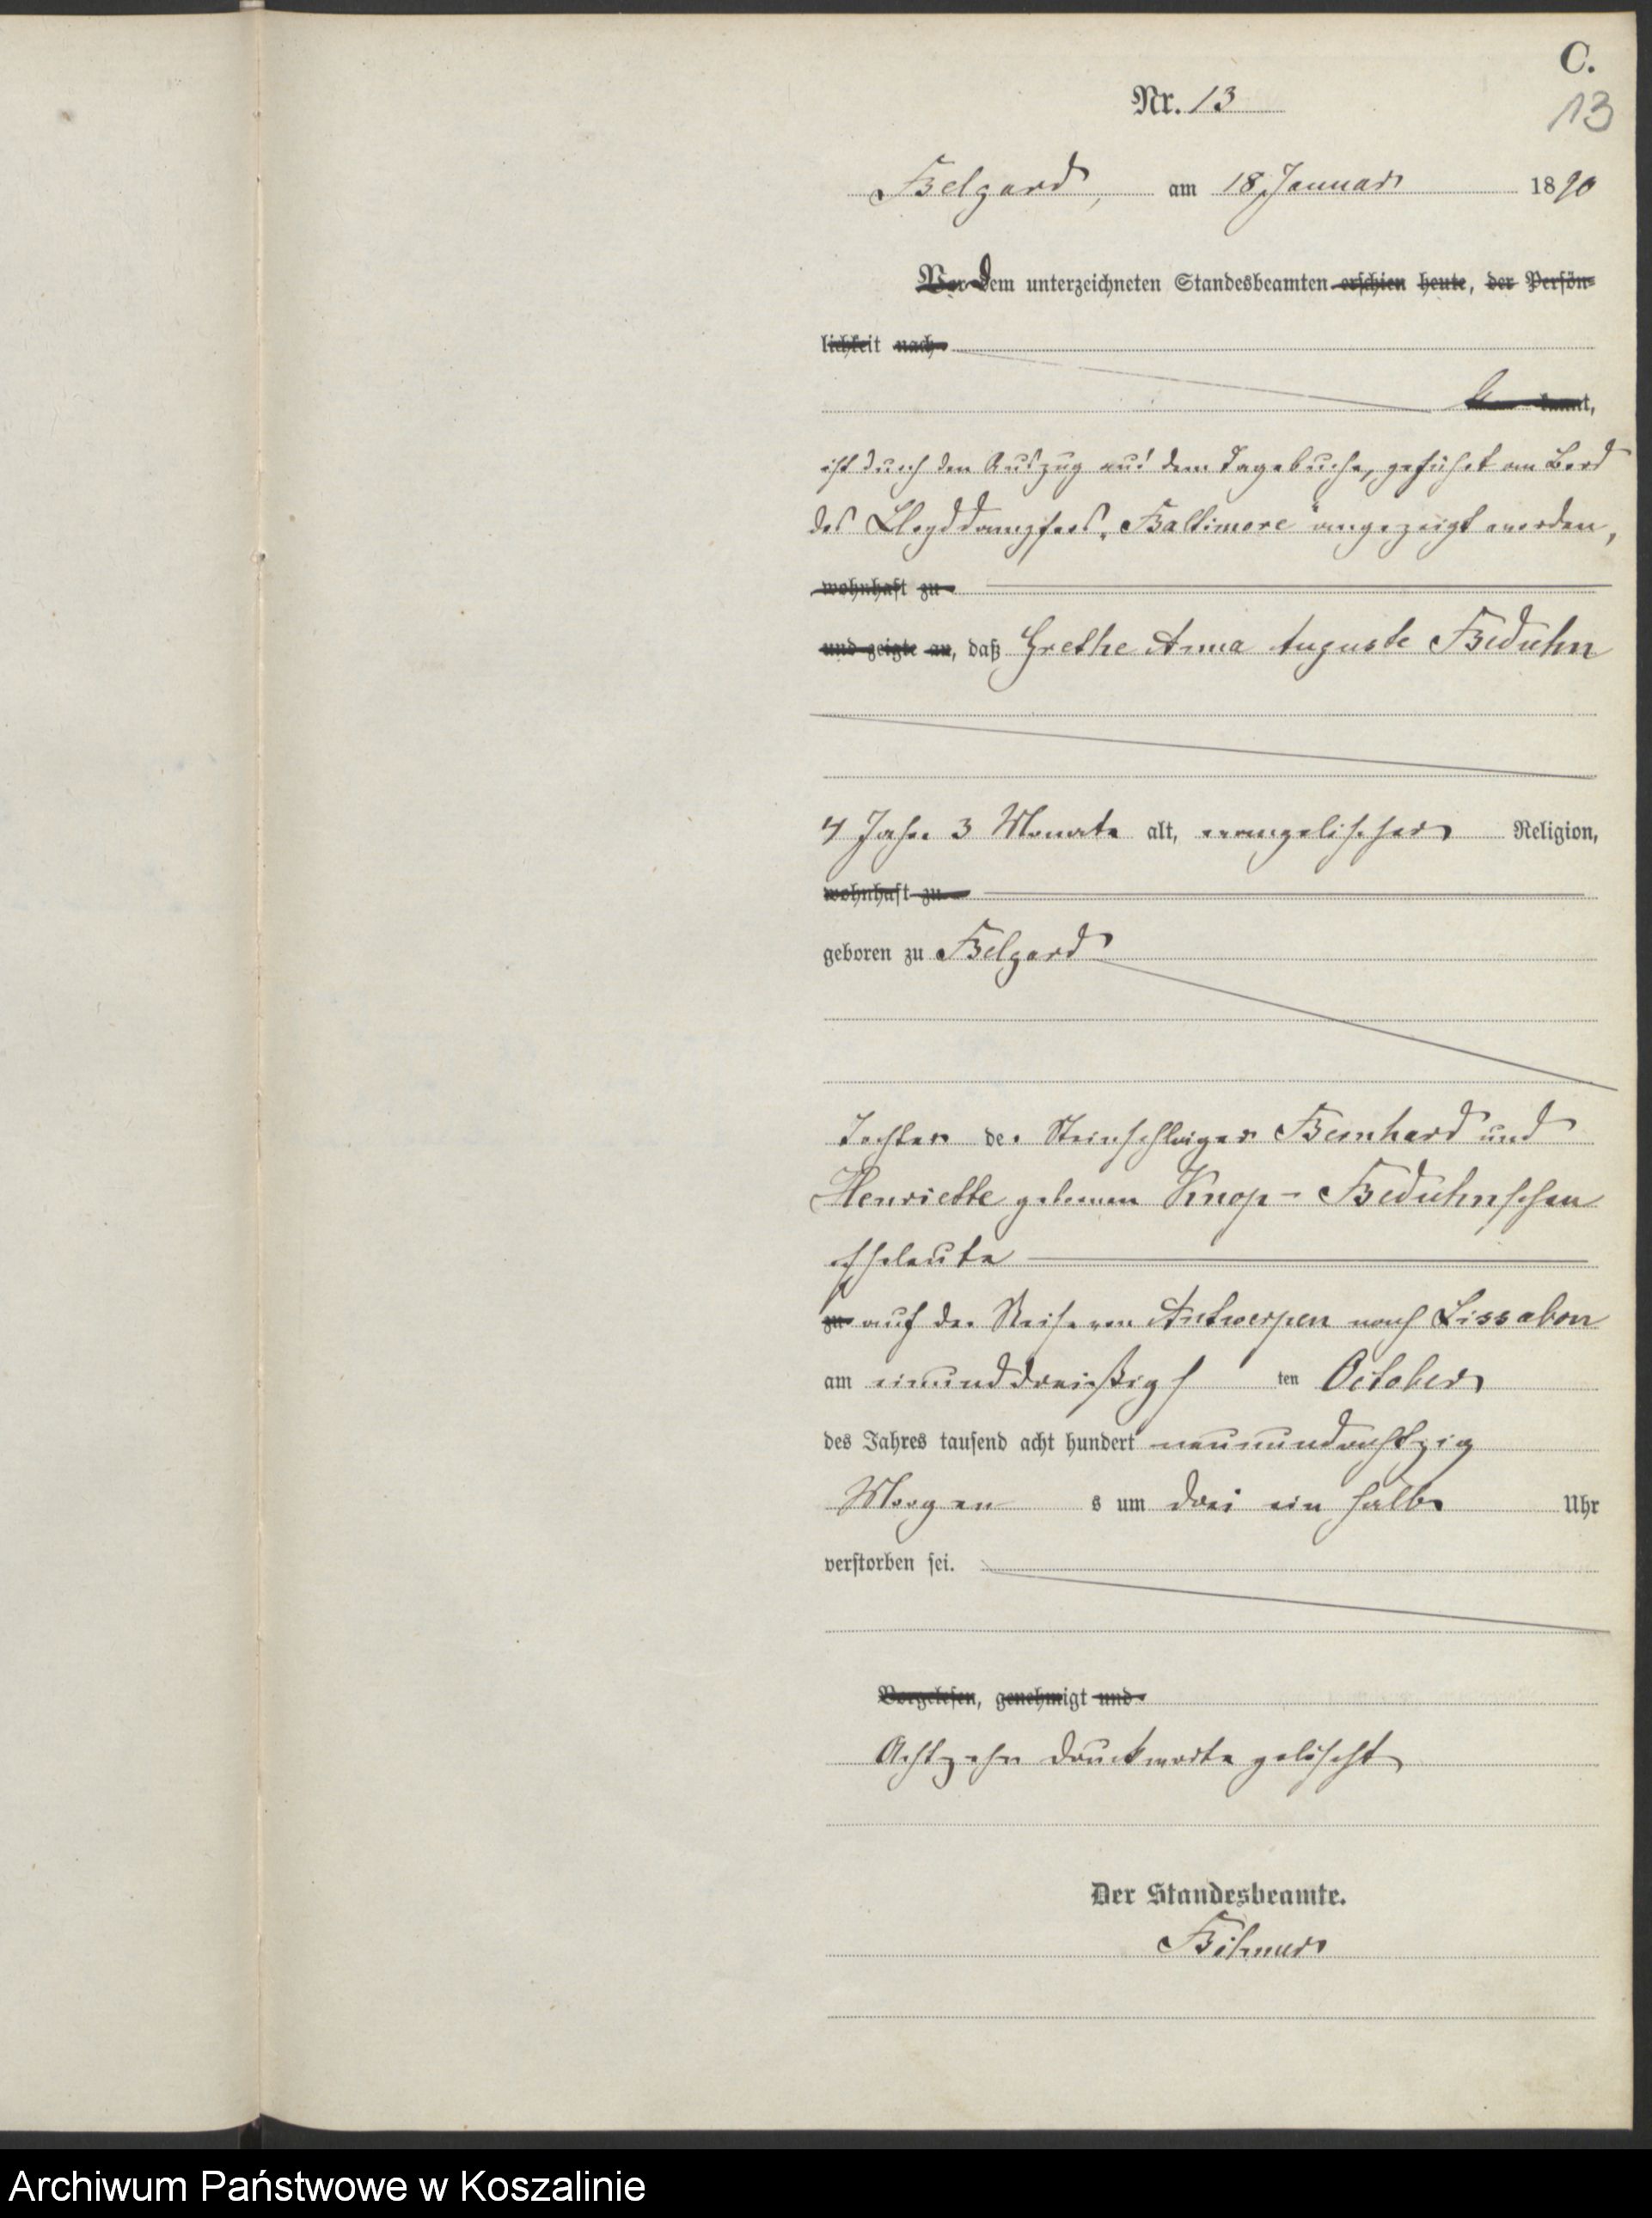 C.
Nr. 13
13
Belgard, am 18 Januar 1890
Vor Dem unterzeichneten Standesbeamten erschien heute, der Persön-
lichkeit nach
kannt,
ist durch den Auszug aus dem Tagebuche, geführt an Bord
des Lloyddampfers „Baltimore“ angezeigt worden,
wohnhaft zu
und zeigte an, daß Grethe Anna Auguste Beduhn
4 Jahre 3 Monate alt, evangelischer Religion,
wohnhaft zu
geboren zu Belgard
Tochter der Steinschläger Bernhard und
Henriette geborenen Knop - Beduhnschen
Eheleute
zu auf der Reise von Antwerpen nach Lissabon
am einunddreißigs ten October
des Jahres tausend acht hundert neunundachtzig
Morgen s um drei ein halb Uhr
verstorben sei.
Vorgelesen, genehmigt und
Achtzehn Druckworte gelöscht
Der Standesbeamte.
Archiwum Państwowe w Koszalinie